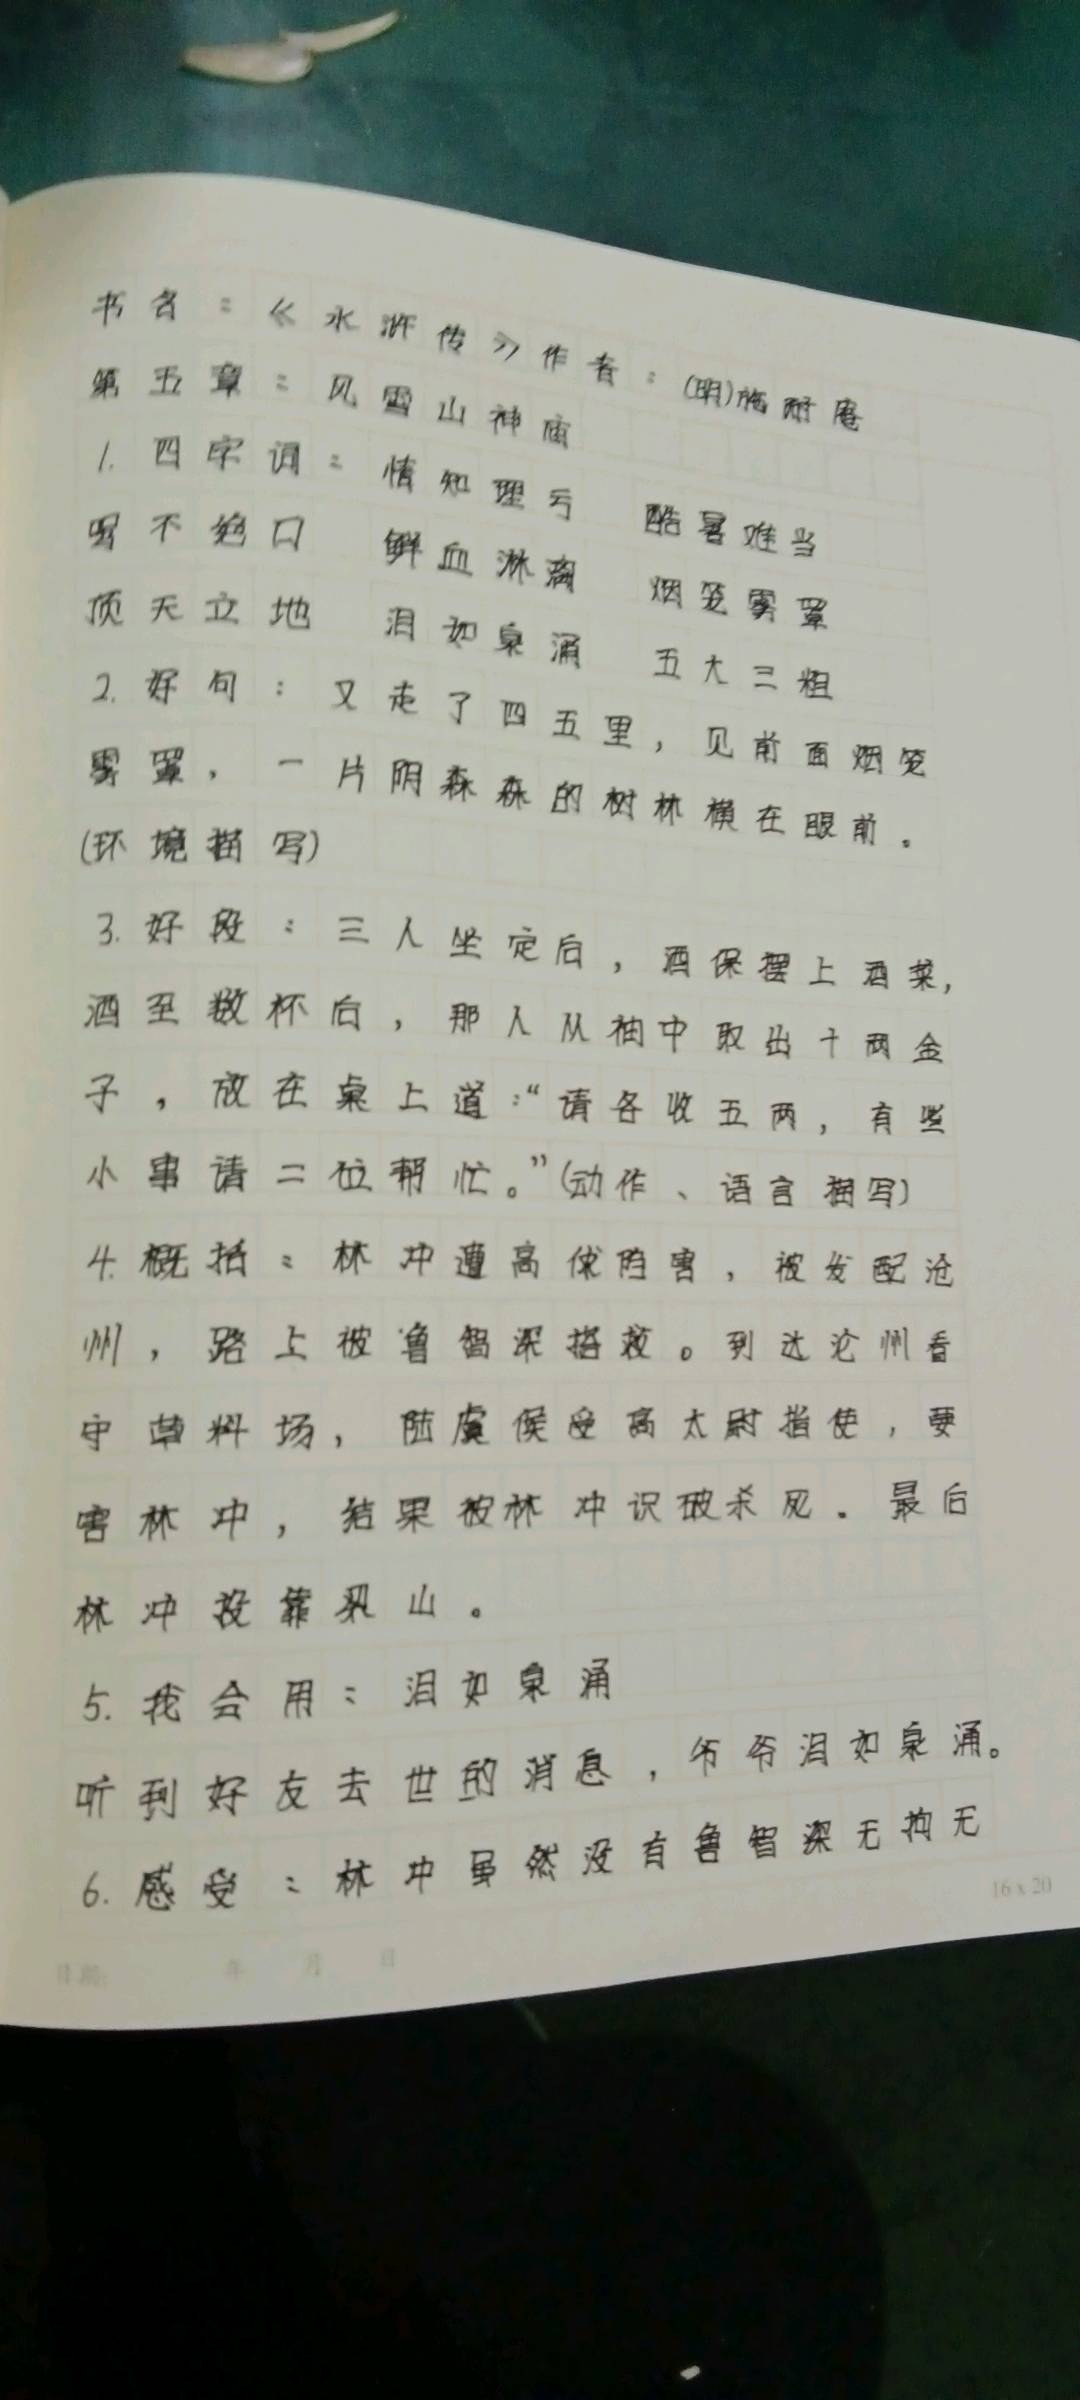 书名：《水浒传》作者：(明)施耐庵
第五章：风雪山神庙
1. 四字词：情知理亏 酷暑难当
骂不绝口 鲜血淋漓 烟笼雾罩
顶天立地 泪如泉涌 五大三粗
2. 好句：又走了四五里，见前面烟笼
雾罩，一片阴森森的树林横在眼前。
(环境描写)
3. 好段：三人坐定后，酒保摆上酒菜，
酒至数杯后，那人从袖中取出十两金
子，放在桌上道：“请各收五两，有些
小事请二位帮忙。”(动作、语言描写)
4. 概括：林冲遭高俅陷害，被发配沧
州，路上被鲁智深搭救。到达沧州看
守草料场，陆虞候受高太尉指使，要
害林冲，结果被林冲识破杀死。最后
林冲投靠梁山。
5. 我会用：泪如泉涌
听到好友去世的消息，爷爷泪如泉涌。
6. 感受：林冲虽然没有鲁智深无拘无
16 x 20
日期： 年 月 日